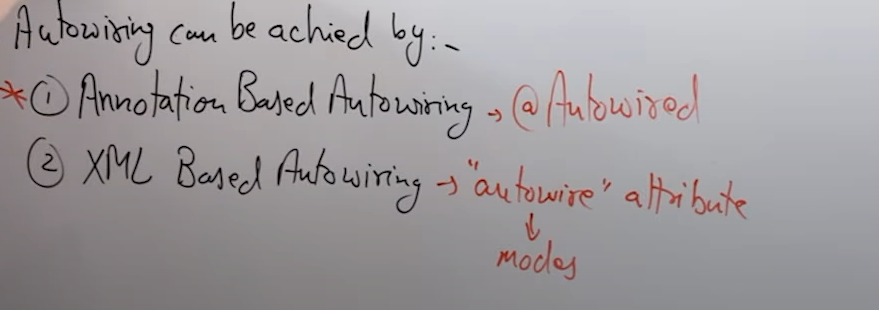 Autowiring can be achied by:-
*① Annotation Based Autowiring → @Autowired
② XML Based Autowiring → "autowire" attribute
↓
modes